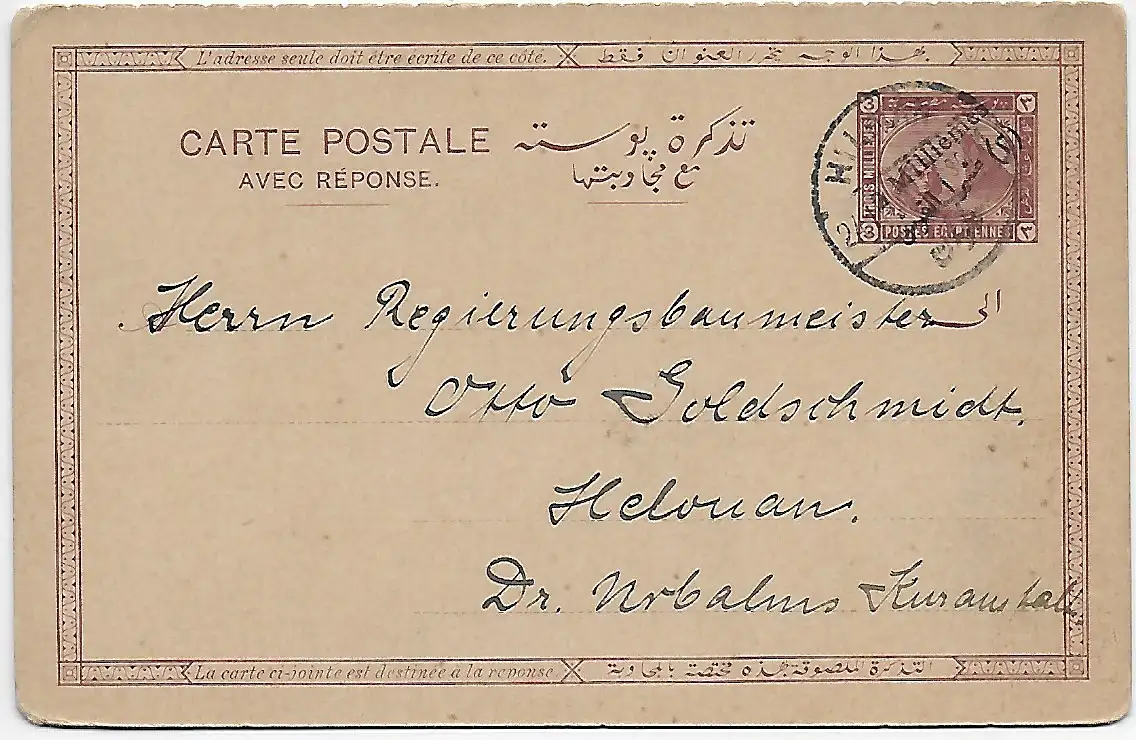 L'adresse seule doit être ecrite de ce côté. بهذا الوجه يحرر العنوان فقط
CARTE POSTALE تذكرة پوسته
AVEC RÉPONSE. مع مجاوبتها
TROIS MILLIEMES
Milliemes
POSTES EGYPTIENNES
3 ٣
3 ٣
Herrn Regierungsbaumeister الى
Otto Goldschmidt.
Helouan.
Dr. Kuranstalt
La carte ci-jointe est destinée a la reponse التذكرة الملصوقة بهذه مختصة بالمجاوبة